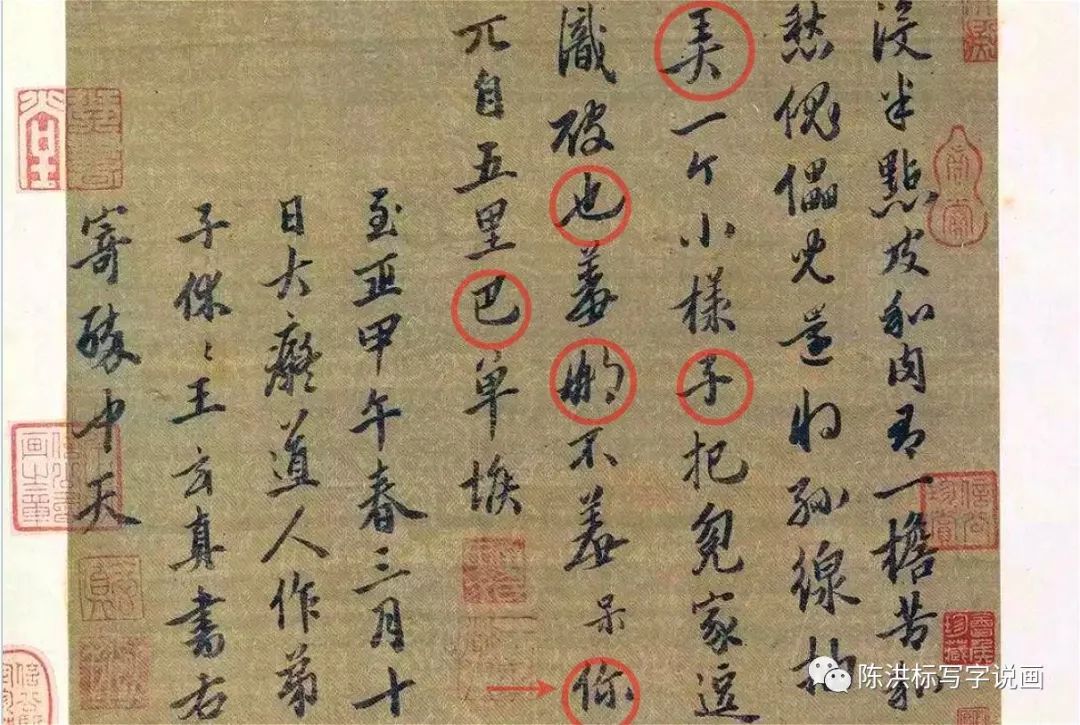 没半點皮和肉有一擔苦和
愁傀儡兒還將絲線抽
弄一个小樣子把冤家逗
識破也羞那不羞呆你
兀自五里巴單堠
至正甲午春三月十
日大癡道人作弟
子休〻王玄真書右
寄醉中天
陈洪标写字说画